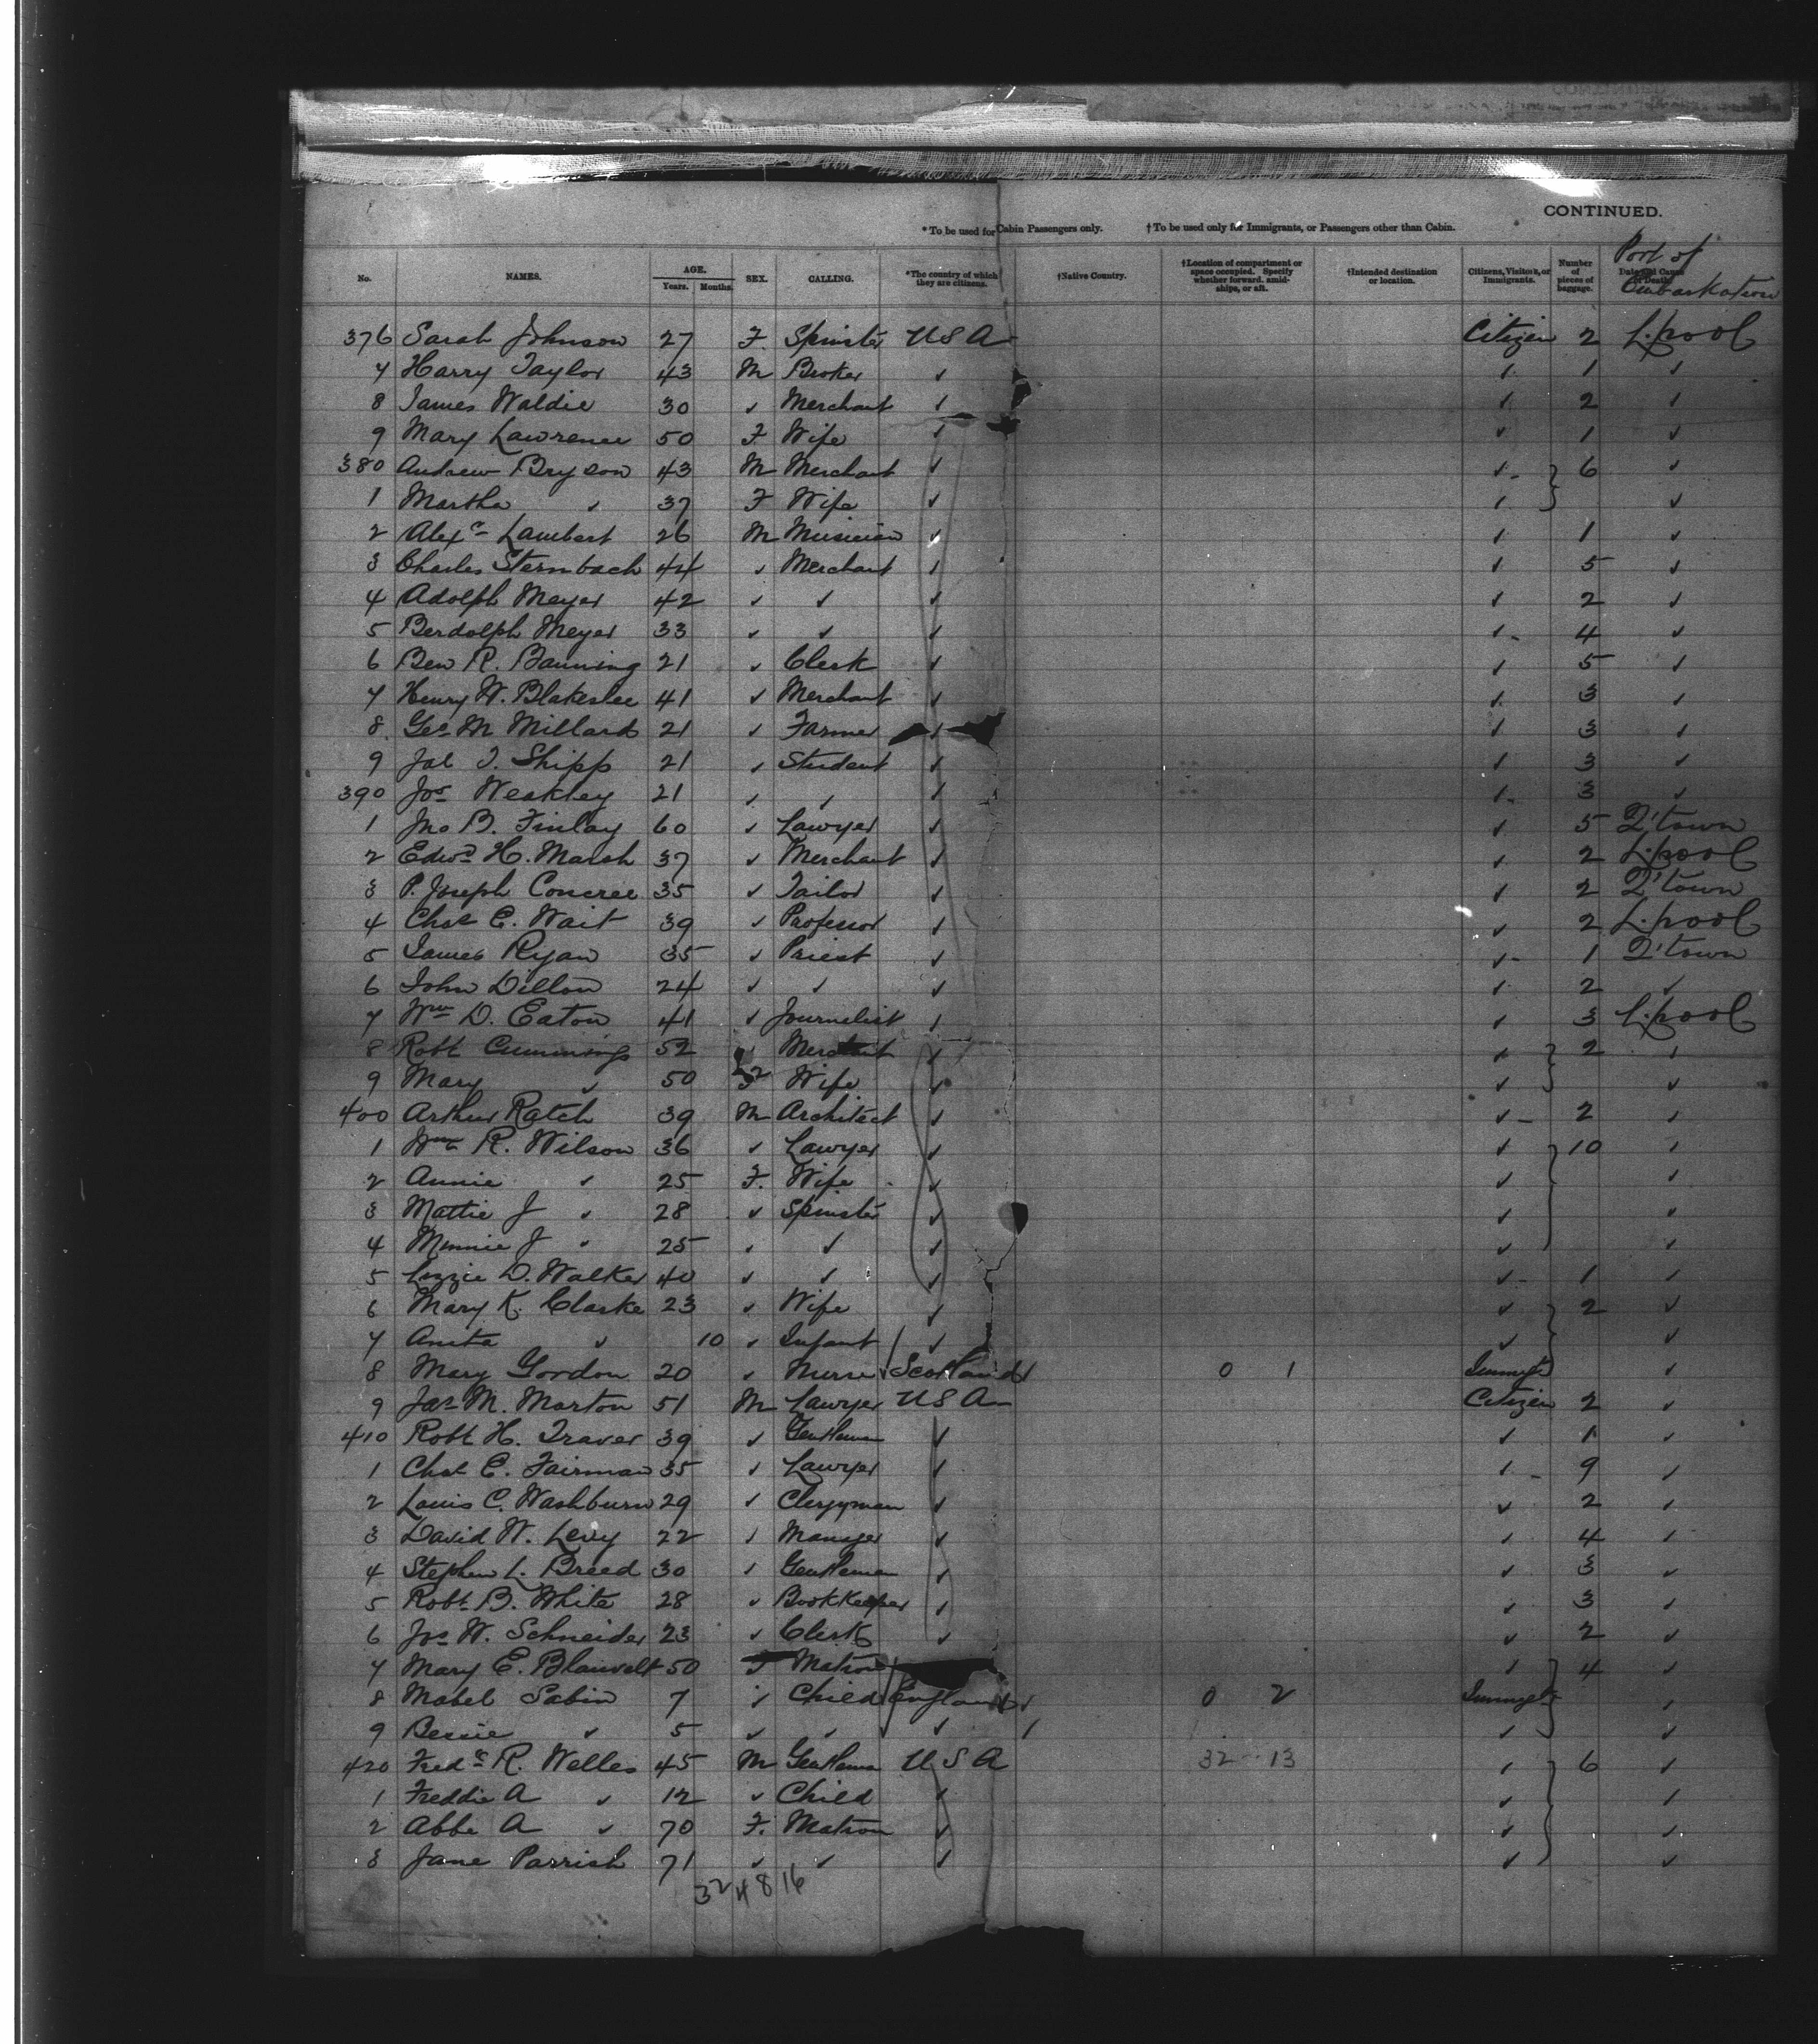 CONTINUED.
* To be used for Cabin Passengers only. † To be used only for Immigrants, or Passengers other than Cabin.
Port of Embarkation
No. NAMES. AGE. Years. Months. SEX. CALLING. *The country of which they are citizens. †Native Country. †Location of compartment or space occupied. Specify whether forward, amidships, or aft. †Intended destination or location. Citizens, Visitors, or Immigrants. Number of pieces of baggage. Date and Cause of Death
376 Sarah Johnson 27 F. Spinster U S A Citizen 2 L.pool
7 Harry Taylor 43 M Broker ✓ ✓ 1 ✓
8 James Waldie 30 ✓ Merchant ✓ ✓ 2 ✓
9 Mary Lawrence 50 F. Wife ✓ ✓ 1 ✓
380 Andrew Bryson 43 M Merchant ✓ ✓ 6 ✓
1 Martha ✓ 37 F Wife ✓ ✓ ✓
2 Alexr Lambert 26 M Musician ✓ ✓ 1 ✓
3 Charles Sternbach 44 ✓ Merchant ✓ ✓ 5 ✓
4 Adolph Meyer 42 ✓ ✓ ✓ ✓ 2 ✓
5 Berdolph Meyer 33 ✓ ✓ ✓ ✓ 4 ✓
6 Ben R. Banning 21 ✓ Clerk ✓ ✓ 5 ✓
7 Henry W. Blakeslee 41 ✓ Merchant ✓ ✓ 3 ✓
8 Geo M Millard 21 ✓ Farmer ✓ ✓ 3 ✓
9 Jas T. Shipp 21 ✓ Student ✓ ✓ 3 ✓
390 Jos Weakley 21 ✓ ✓ ✓ ✓ 3 ✓
1 Jno B. Finlay 60 ✓ Lawyer ✓ ✓ 5 Q'town
2 Edwd H. Marsh 37 ✓ Merchant ✓ ✓ 2 L.pool
3 P. Joseph Concree 35 ✓ Tailor ✓ ✓ 2 Q'town
4 Chas E. Wait 39 ✓ Professor ✓ ✓ 2 L.pool
5 James Ryan 35 ✓ Priest ✓ ✓ 1 Q'town
6 John Dillon 24 ✓ ✓ ✓ ✓ 2 ✓
7 Wm D. Eaton 41 ✓ Journalist ✓ ✓ 3 L.pool
8 Robt Cummings 52 ✓ Merchant ✓ ✓ 2 ✓
9 Mary ✓ 50 F Wife ✓ ✓ ✓
400 Arthur Ratch 39 M Architect ✓ ✓ 2 ✓
1 Wm R. Wilson 36 ✓ Lawyer ✓ ✓ 10 ✓
2 Annie ✓ 25 F. Wife ✓ ✓ ✓
3 Mattie J ✓ 28 ✓ Spinster ✓ ✓ ✓
4 Minnie J ✓ 25 ✓ ✓ ✓ ✓ ✓
5 Lizzie D. Walker 40 ✓ ✓ ✓ ✓ 1 ✓
6 Mary K. Clarke 23 ✓ Wife ✓ ✓ 2 ✓
7 Anita ✓ 10 ✓ Infant ✓ ✓ ✓
8 Mary Gordon 20 ✓ Nurse Scotland 0 1 Immigt ✓
9 Jas M. Morton 51 M Lawyer U S A Citizen 2 ✓
410 Robt H. Traver 39 ✓ Gentleman ✓ ✓ 1 ✓
1 Chas E. Fairman 35 ✓ Lawyer ✓ ✓ 9 ✓
2 Louis C. Washburn 29 ✓ Clergyman ✓ ✓ 2 ✓
3 David W. Levy 22 ✓ Manager ✓ ✓ 4 ✓
4 Stephen L. Breed 30 ✓ Gentleman ✓ ✓ 3 ✓
5 Robt B. White 28 ✓ Bookkeeper ✓ ✓ 3 ✓
6 Jos W. Schneider 23 ✓ Clerk ✓ ✓ 2 ✓
7 Mary E. Blauvelt 50 F Matron ✓ 4 ✓
8 Mabel Sabin 7 ✓ Child England 0 2 Immigt ✓
9 Bessie ✓ 5 ✓ ✓ ✓ ✓ ✓
420 Fredc R. Welles 45 M Gentleman U S A 32 13 ✓ 6 ✓
1 Freddie A ✓ 12 ✓ Child ✓ ✓ ✓
2 Abbe A ✓ 70 F. Matron ✓ ✓ ✓
3 Jane Parrish 71 ✓ ✓ ✓ ✓ ✓
32 4 8 16